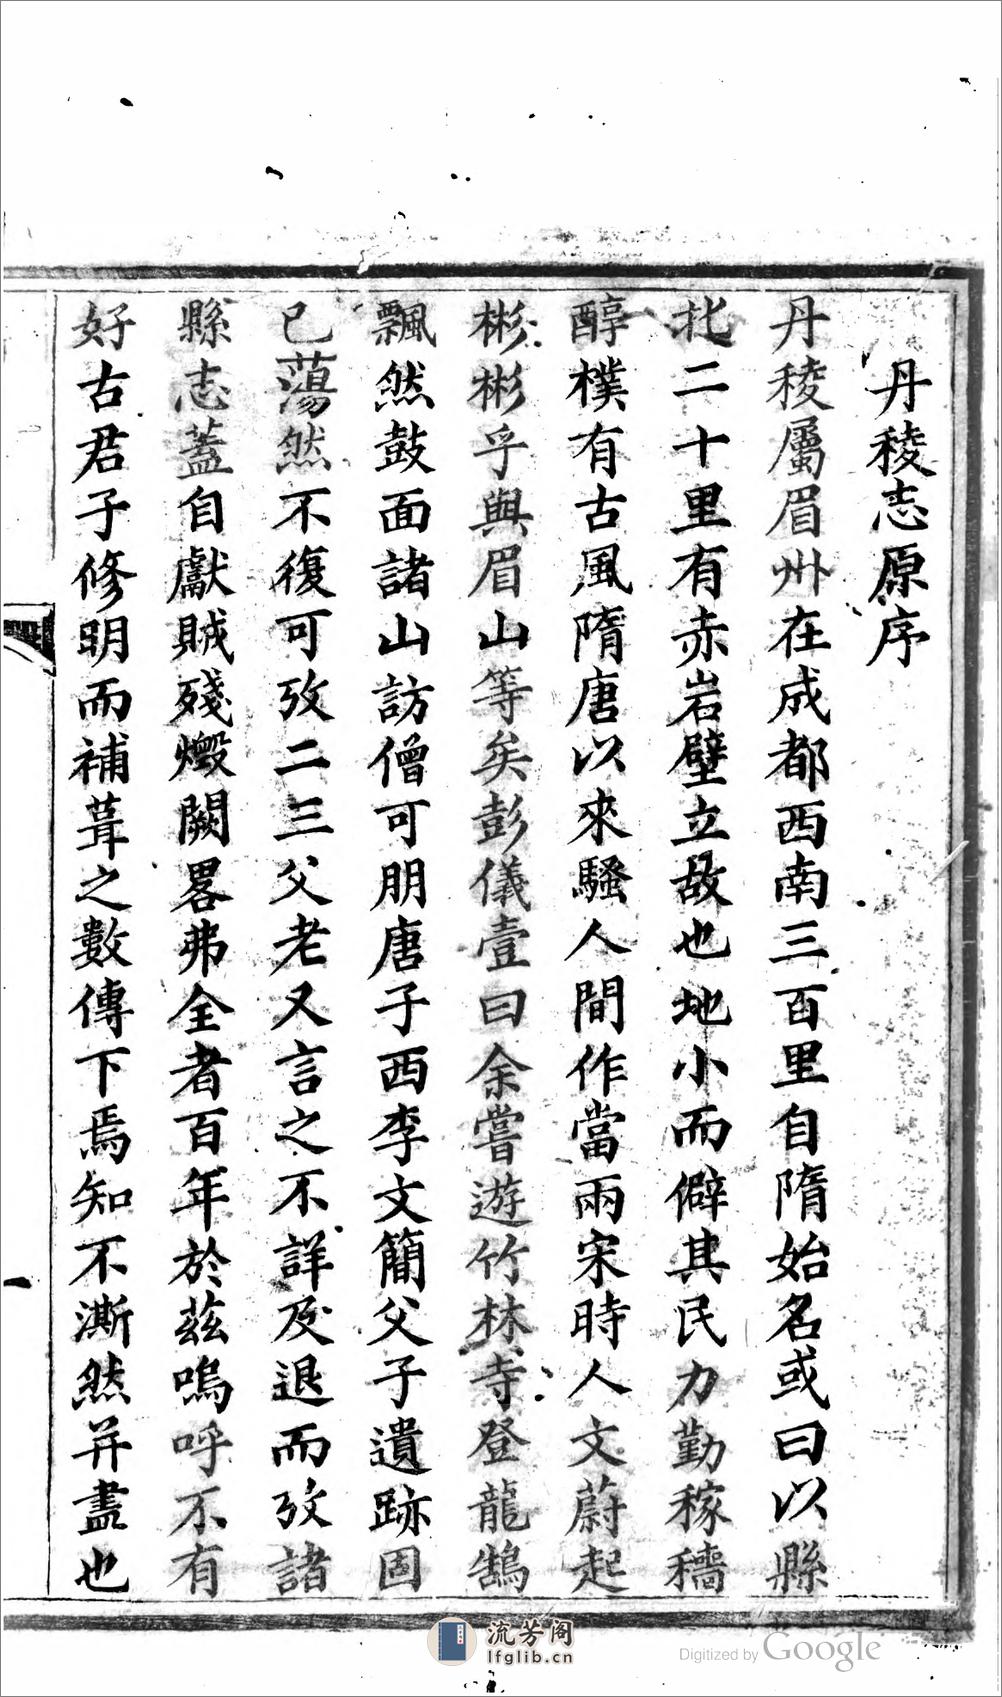 丹稜志原序
丹稜屬眉州在成都西南三百里自隋始名或曰以縣
北二十里有赤岩壁立故也地小而僻其民力勤稼穡
醇樸有古風隋唐以來騷人間作當兩宋時人文蔚起
彬彬乎與眉山等矣彭儀壹曰余嘗遊竹林寺登龍鵠
飄然鼓面諸山訪僧可朋唐子西李文簡父子遺跡固
已蕩然不復可攷二三父老又言之不詳及退而攷諸
縣志蓋自獻賊殘燬闕畧弗全者百年於茲嗚呼不有
好古君子修明而補葺之數傳下焉知不澌然并盡也
流芳阁
lfglib.cn
Digitized by Google